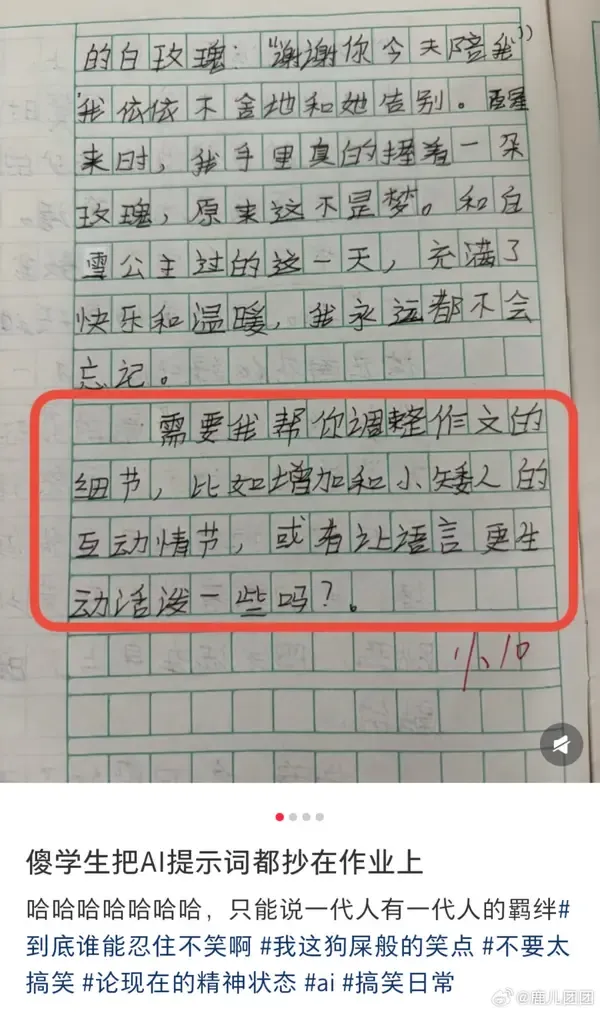 的白玫瑰：“谢谢你今天陪我”
我依依不舍地和她告别。醒
来时，我手里真的握着一朵
玫瑰，原来这不是梦。和白
雪公主过的这一天，充满了
快乐和温暖，我永远都不会
忘记。
需要我帮你调整作文的
细节，比如增加和小矮人的
互动情节，或者让语言更生
动活泼一些吗？。
傻学生把AI提示词都抄在作业上
哈哈哈哈哈哈哈，只能说一代人有一代人的羁绊#
到底谁能忍住不笑啊 #我这狗屎般的笑点 #不要太
搞笑 #论现在的精神状态 #ai #搞笑日常
@鹿儿团团